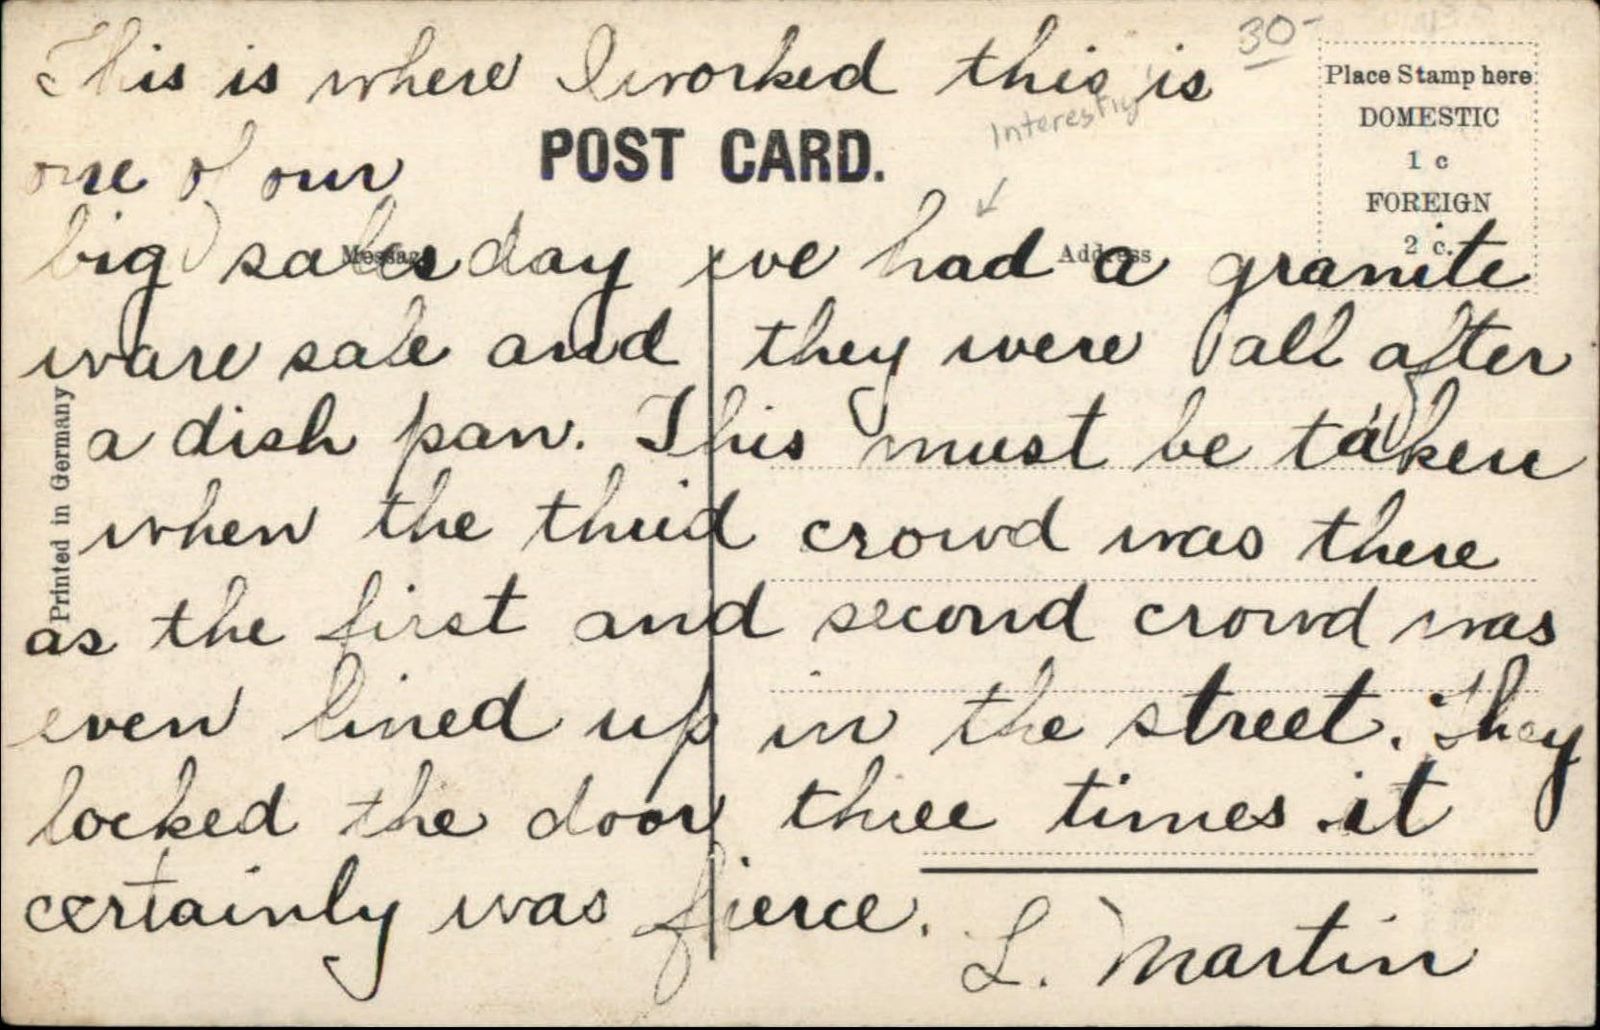 This is where I worked this is
30-
Interesting
one of our
POST CARD.
Place Stamp here
DOMESTIC
1 c
FOREIGN
2 c.
Message
Address
big sales day we had a granite
ware sale and they were all after
a dish pan. This must be taken
when the third crowd was there
as the first and second crowd was
even lined up in the street. They
locked the door three times it
certainly was fierce.
L. Martin
Printed in Germany